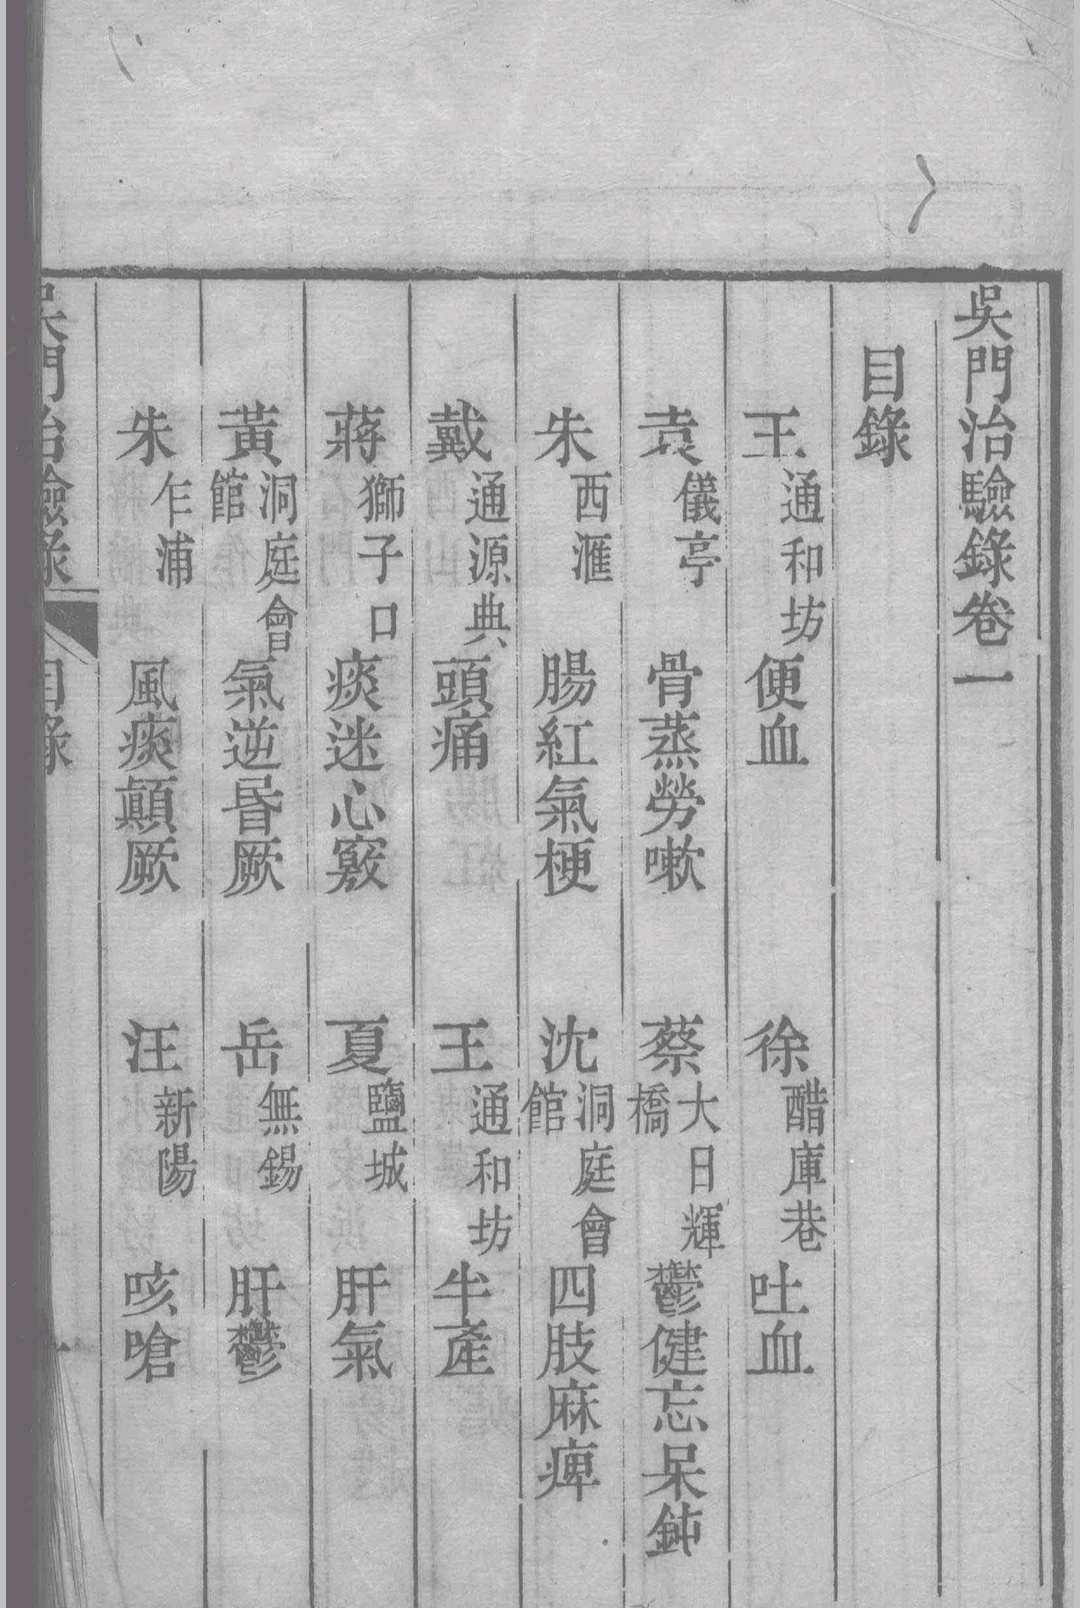 吳門治驗錄卷一
目錄
王 通和坊 便血 徐 醋庫巷 吐血
袁 儀亭 骨蒸勞嗽 蔡 大日輝橋 鬱健忘呆鈍
朱 西滙 腸紅氣梗 沈 洞庭會館 四肢麻痺
戴 通源典 頭痛 王 通和坊 半產
蔣 獅子口 痰迷心竅 夏 鹽城 肝氣
黃 洞庭會館 氣逆昏厥 岳 無錫 肝鬱
朱 乍浦 風痰顛厥 汪 新陽 咳嗆
吳門治驗錄 目錄 一